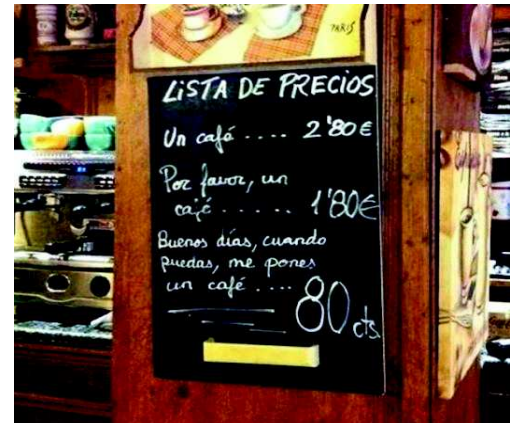 PARIS
LISTA DE PRECIOS
Un café .... 2'80€
Por favor, un
café ..... 1'80€
Buenos días, cuando
puedas, me pones
un café ....
80 cts.